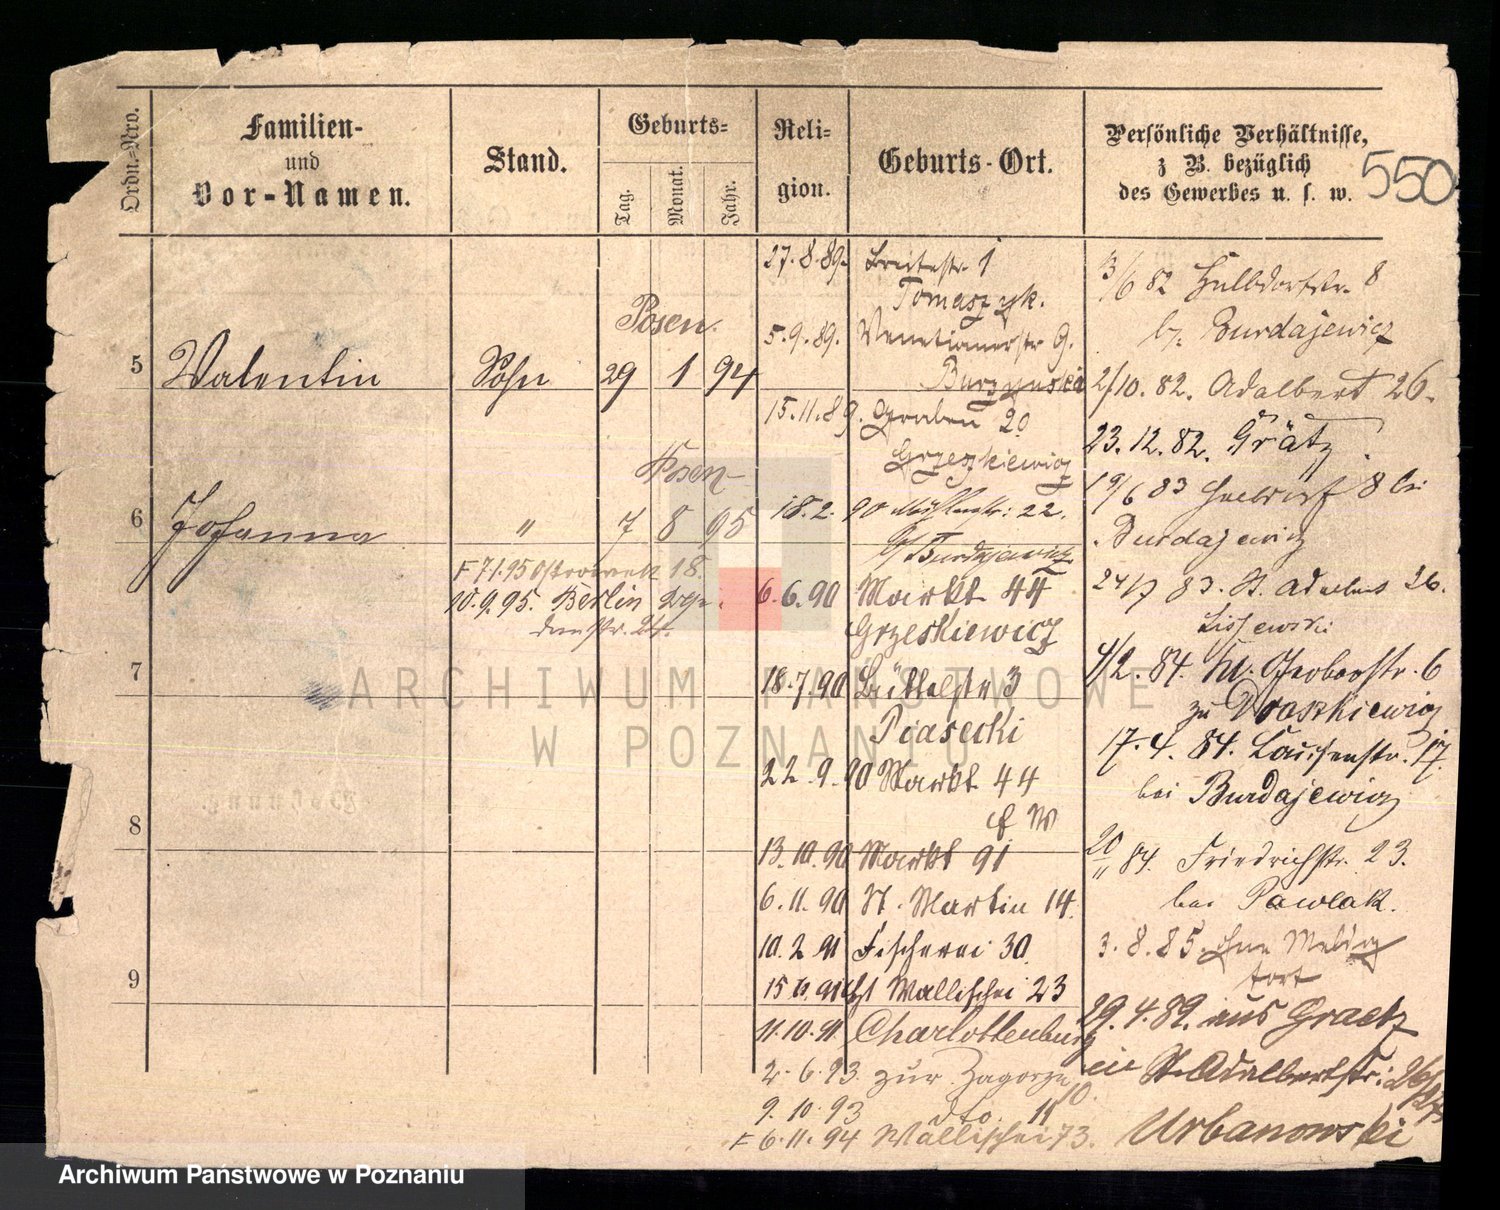 Ordn.-Nro.
Familien-
und
Vor-Namen.
Stand.
Geburts-
Tag.
Monat.
Jahr.
Reli-
gion.
Geburts-Ort.
Persönliche Verhältnisse,
z. B. bezüglich
des Gewerbes u. s. w.
550
Posen.
5 Valentin Sohn 29 1 94
Posen
6 Johanna " 7 8 95
F 7.1.95 18.
10.9.95. Berlin
7
8
9
27.8.89. Breitestr. 1
Tomaszyk.
5.9.89. Venetianerstr 9.
Burzynski
15.11.89. Graben 20
Grzeskiewicz
18.2.90 Mühlenstr: 22.
b/ Burdajewicz
6.6.90 Markt 44
Grzeskiewicz
18.7.90 Büttelstr 3
Piasecki
22.9.90 Markt 44
13.10.90 Markt 91
6.11.90 St. Martin 14.
10.2.91 Fischerei 30
15.6.91 Wallischei 23
11.10.91 Charlottenburg
2.6.93 zur Zagorze
10.
9.10.93 dto. 11
F 6.11.94 Wallischei 73.
3/6 82 8
b. Burdajewicz
2/10.82. Adalbert 26.
23.12.82. Grätz.
19/6 83 8 bei
Burdajewicz
24/7 83. St. Adalbert 26.
Lissewski
4/2.84. Kl. Gerberstr. 6
zu Draszkiewicz
17.4.84. 17.
bei Burdajewicz
20/11 84. Friedrichstr. 23.
bei Pawlak.
3.8.85. ohne Meldg
fort
29.4.89. aus Graetz
St. Adalbertstr: 26/27
Urbanowski
ARCHIWUM PAŃSTWOWE
W POZNANIU
Archiwum Państwowe w Poznaniu